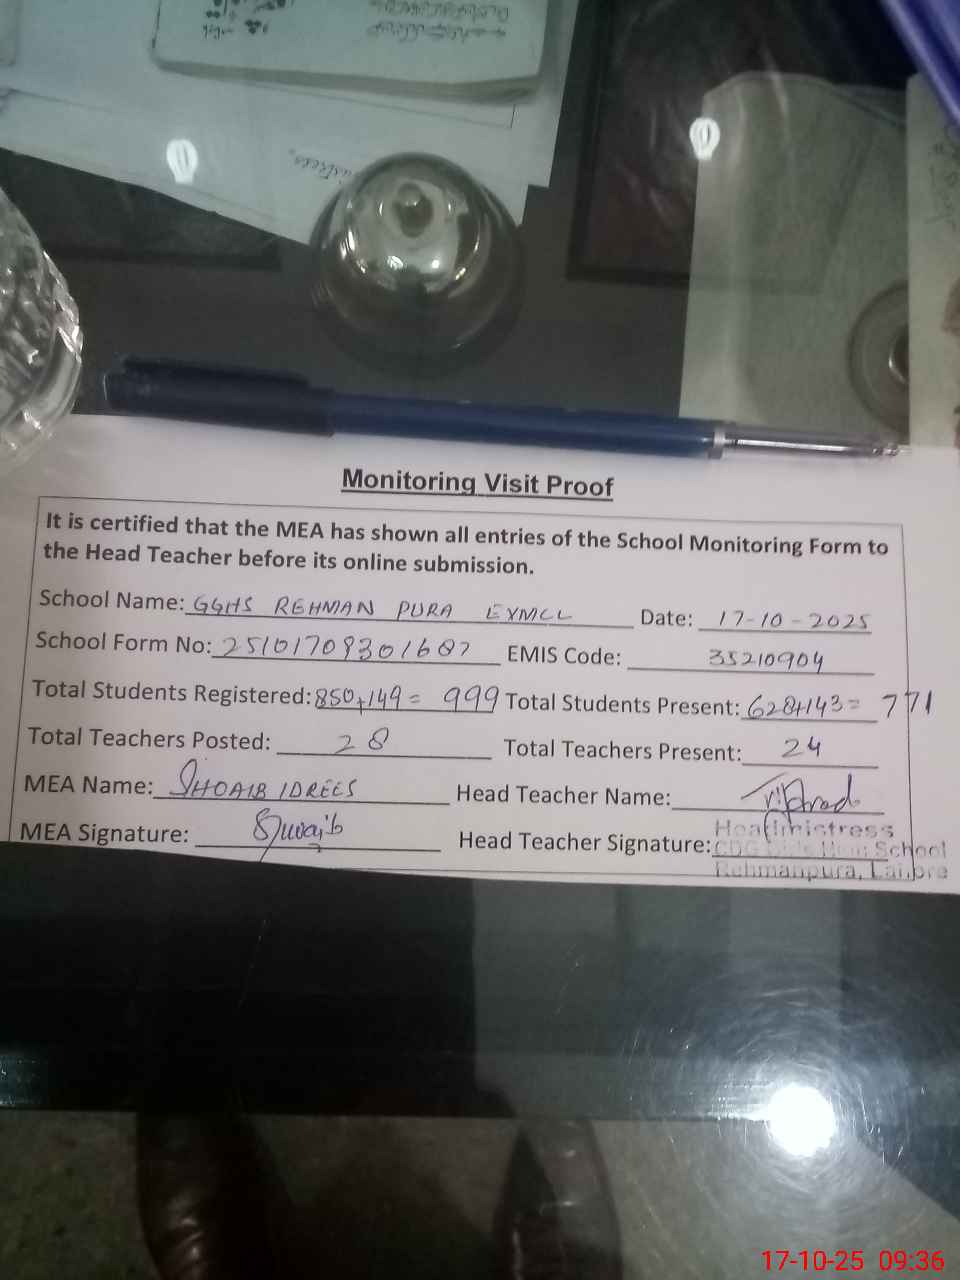 Monitoring Visit Proof
It is certified that the MEA has shown all entries of the School Monitoring Form to
the Head Teacher before its online submission.
School Name: GGHS REHMAN PURA EXMCL Date: 17-10-2025
School Form No: 25101709301687 EMIS Code: 35210904
Total Students Registered: 850+149= 999 Total Students Present: 628+143= 771
Total Teachers Posted: 28 Total Teachers Present: 24
MEA Name: SHOAIB IDREES Head Teacher Name:
MEA Signature: Shuaib Head Teacher Signature:
Headmistress
CDG Girls High School
Rehmanpura, Lahore
17-10-25 09:36